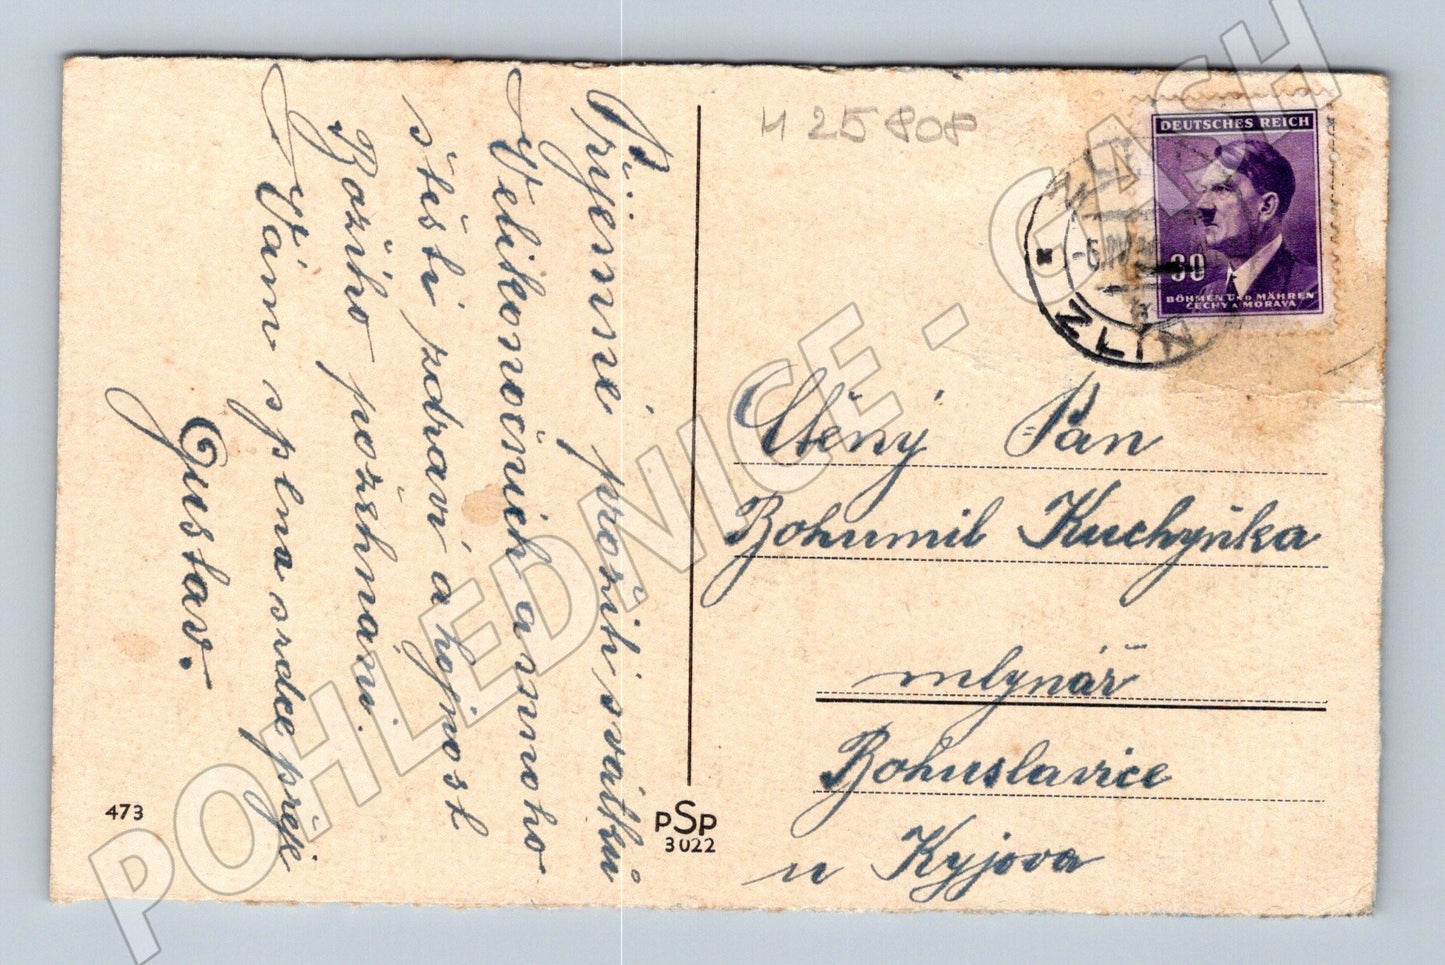 Příjemné prožití svátků
Velikonočních a mnoho
štěstí zdraví a hojnost
Božího požehnání.
Vám s plna srdce přeje
Gustav.
473
PSP
3022
H 25808
DEUTSCHES REICH
60
BÖHMEN UND MÄHREN
ČECHY A MORAVA
ZLIN
Ctěný Pan
Bohumil Kuchyňka
mlynář
Bohuslavice
u Kyjova
POHLEDNICE - GASH